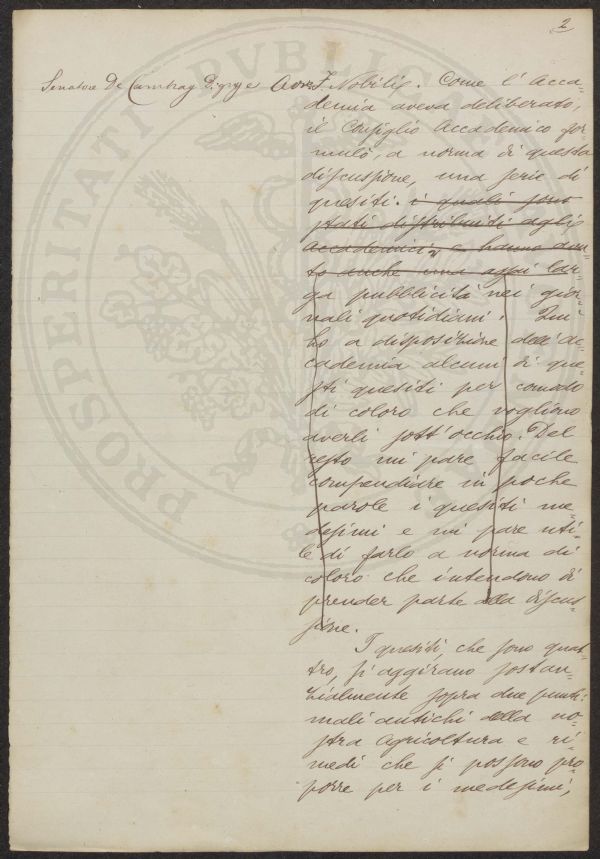 2
Senatore De Cambray Digny e Avv. Nobili. Come l'Acca=
demia aveva deliberato,
il Consiglio Accademico for=
mulò, a norma di questa
discussione, una serie di
quesiti. i quali sono
stati distribuiti agli
accademici, e hanno avu=
to anche una assai lar=
ga pubblicità nei gior=
nali quotidiani.
ho a disposizione dell'Ac=
cademia alcuni di que=
sti quesiti per comodo
di coloro che vogliono
averli sott'occhio. Del
resto mi pare facile
compendiare in poche
parole i quesiti me=
desimi e mi pare uti=
le di farlo a norma di
coloro che intendono di
prender parte alla discus=
sione.
I quesiti, che sono quat=
tro, si aggirano sostan=
zialmente sopra due punti:
mali antichi della no=
stra agricoltura e ri=
medi che si possono pro=
porre per i medesimi,
PROSPERITATI PUBLICAE